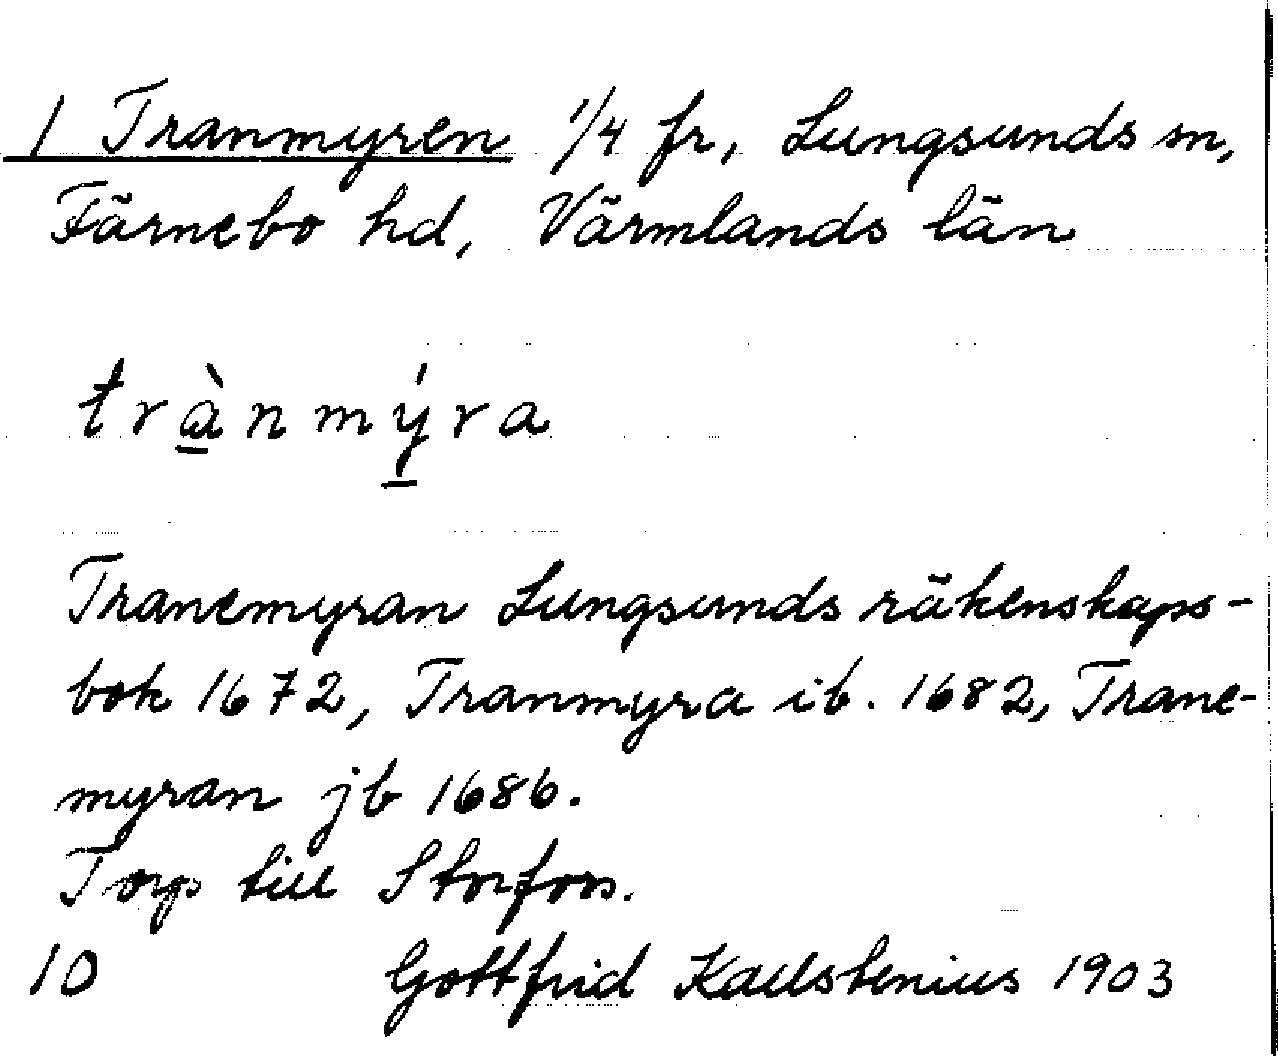 1 Tranmyren 1/4 fr, Lungsunds sn,
Färnebo hd, Värmlands län
trà̱nmý̱ra
Tranemyran Lungsunds räkenskaps-
bok 1672, Tranmyra ib. 1682, Trane-
myran jb 1686.
Torp till Storfors.
10 Gottfrid Kallstenius 1903